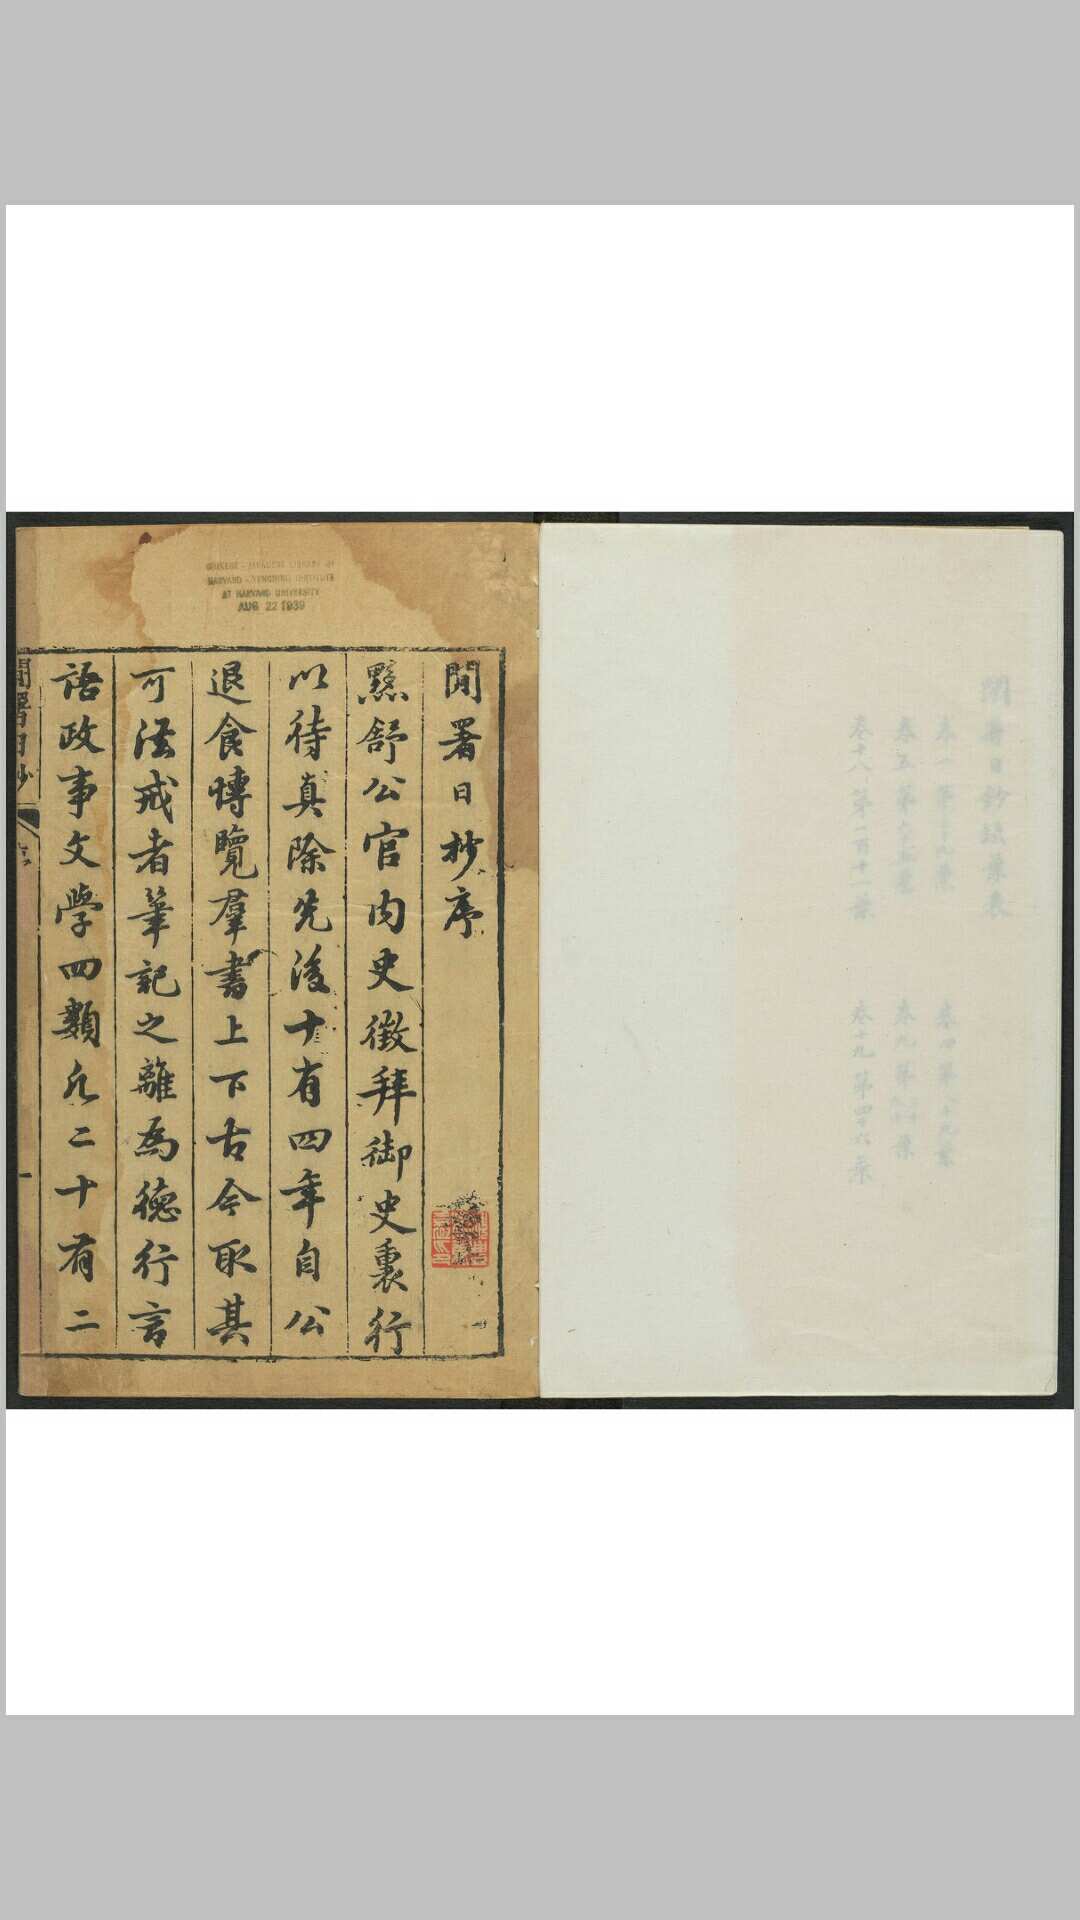 閒署日鈔缺葉表
卷一 第二十九葉 卷四 第八十九葉
卷十八 第一百十一葉 卷十九 第四十六葉
閒署日抄序
黟舒公官内史徵拜御史裏行
以待真除先後十有四年自公
退食博覽羣書上下古今取其
可法戒者筆記之離為德行言
語政事文學四類凡二十有二
閒署日抄
序
一
CHINESE - JAPANESE LIBRARY OF
HARVARD - YENCHING INSTITUTE
AT HARVARD UNIVERSITY
AUG 22 1939